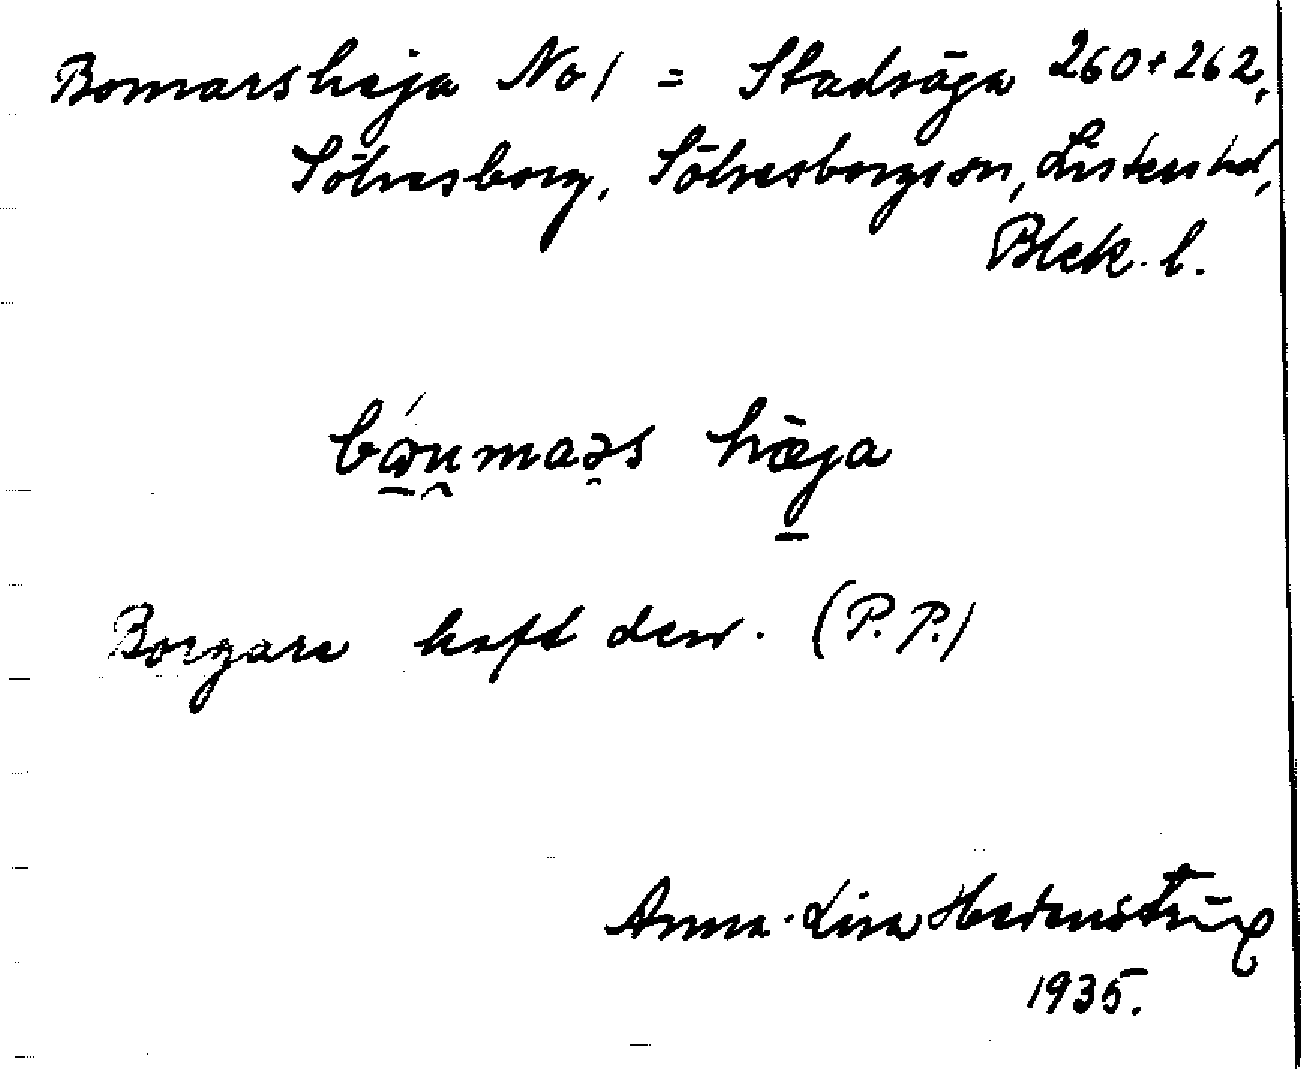 Bomarshaja No 1 = Stadsäga 260+262,
Sölvesborg, Sölvesborgs sn, Listers hd,
Blek. l.
hæja
Borgare haft den. (P. P.)
Anna-Lisa Hedenström
1935.